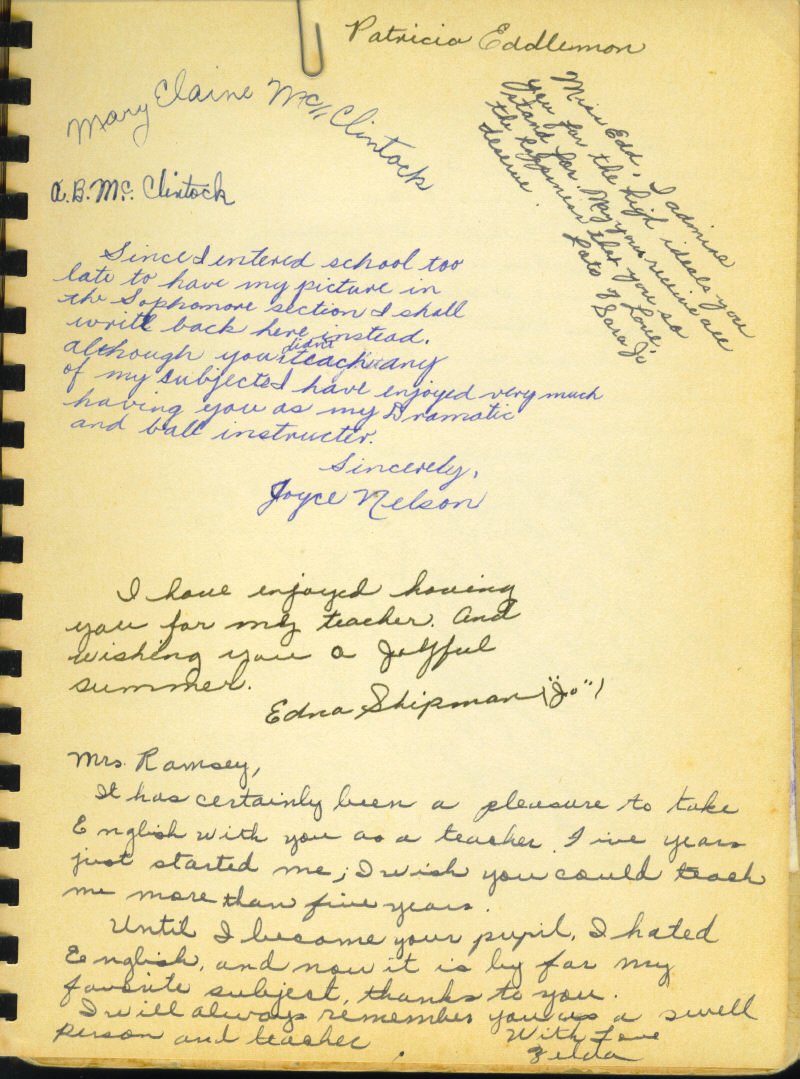 Patricia Eddlemon
Mary Elaine McClintock
A.B. Mc. Clintock
Miss Edd, I admire
you for the high ideals you
stand for. May you receive all
the happiness that you so
deserve.
Love,
Lots of
Sara Jo
Since I entered school too
late to have my picture in
the Sophomore section I shall
write back here instead.
although you didn't teach any
of my subjects I have enjoyed very much
having you as my Dramatic
and ball instructer.
Sincerely,
Joyce Nelson
I have enjoyed having
you for my teacher. And
wishing you a joyful
summer.
Edna Shipman ("Jo")
Mrs. Ramsey,
It has certainly been a pleasure to take
English with you as a teacher. Five years
just started me; I wish you could teach
me more than five years.
Until I became your pupil, I hated
English, and now it is by far my
favorite subject, thanks to you.
I will always remember you as a swell
person and teacher
With Love
Zelda